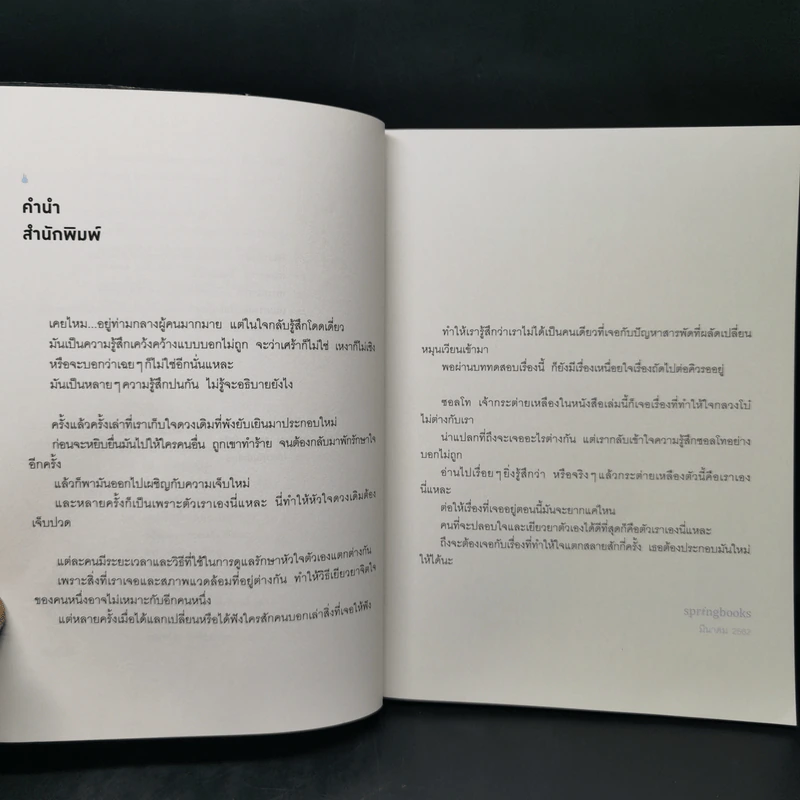 คำนำ
สำนักพิมพ์
เคยไหม...อยู่ท่ามกลางผู้คนมากมาย แต่ในใจกลับรู้สึกโดดเดี่ยว
มันเป็นความรู้สึกเคว้งคว้างแบบบอกไม่ถูก จะว่าเศร้าก็ไม่ใช่ เหงาก็ไม่เชิง
หรือจะบอกว่าเฉยๆ ก็ไม่ใช่อีกนั่นแหละ
มันเป็นหลายๆ ความรู้สึกปนกัน ไม่รู้จะอธิบายยังไง
ครั้งแล้วครั้งเล่าที่เราเก็บใจดวงเดิมที่พังยับเยินมาประกอบใหม่
ก่อนจะหยิบยื่นมันไปให้ใครคนอื่น ถูกเขาทำร้าย จนต้องกลับมาพักรักษาใจ
อีกครั้ง
แล้วก็พามันออกไปเผชิญกับความเจ็บใหม่
และหลายครั้งก็เป็นเพราะตัวเราเองนี่แหละ นี่ทำให้หัวใจดวงเดิมต้อง
เจ็บปวด
แต่ละคนมีระยะเวลาและวิธีที่ใช้ในการดูแลรักษาหัวใจตัวเองแตกต่างกัน
เพราะสิ่งที่เราเจอและสภาพแวดล้อมที่อยู่ต่างกัน ทำให้วิธีเยียวยาจิตใจ
ของคนหนึ่งอาจไม่เหมาะกับอีกคนหนึ่ง
แต่หลายครั้งเมื่อได้แลกเปลี่ยนหรือได้ฟังใครสักคนบอกเล่าสิ่งที่เจอให้ฟัง
ทำให้เรารู้สึกว่าเราไม่ได้เป็นคนเดียวที่เจอกับปัญหาสารพัดที่ผลัดเปลี่ยน
หมุนเวียนเข้ามา
พอผ่านบททดสอบเรื่องนี้ ก็ยังมีเรื่องเหนื่อยใจเรื่องถัดไปต่อคิวรออยู่
ซอลโท เจ้ากระต่ายเหลืองในหนังสือเล่มนี้ก็เจอเรื่องที่ทำให้ใจกลวงโบ๋
ไม่ต่างกับเรา
น่าแปลกที่ถึงจะเจออะไรต่างกัน แต่เรากลับเข้าใจความรู้สึกซอลโทอย่าง
บอกไม่ถูก
อ่านไปเรื่อยๆ ยิ่งรู้สึกว่า หรือจริงๆ แล้วกระต่ายเหลืองตัวนี้คือเราเอง
นี่แหละ
ต่อให้เรื่องที่เจออยู่ตอนนี้มันจะยากแค่ไหน
คนที่จะปลอบใจและเยียวยาตัวเองได้ดีที่สุดก็คือตัวเราเองนี่แหละ
ถึงจะต้องเจอกับเรื่องที่ทำให้ใจแตกสลายสักกี่ครั้ง เธอต้องประกอบมันใหม่
ให้ได้นะ
springbooks
มีนาคม 2567